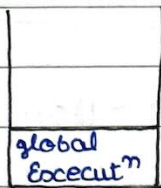 global
Excecutⁿ